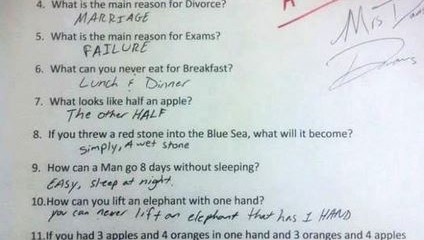 4. What is the main reason for Divorce?
MARRIAGE
5. What is the main reason for Exams?
FAILURE
6. What can you never eat for Breakfast?
Lunch & Dinner
7. What looks like half an apple?
The other HALF
8. If you threw a red stone into the Blue Sea, what will it become?
simply, A wet stone
9. How can a Man go 8 days without sleeping?
EASY, sleep at night.
10.How can you lift an elephant with one hand?
you can never lift an elephant that has 1 HAND
11.If you had 3 apples and 4 oranges in one hand and 3 oranges and 4 apples